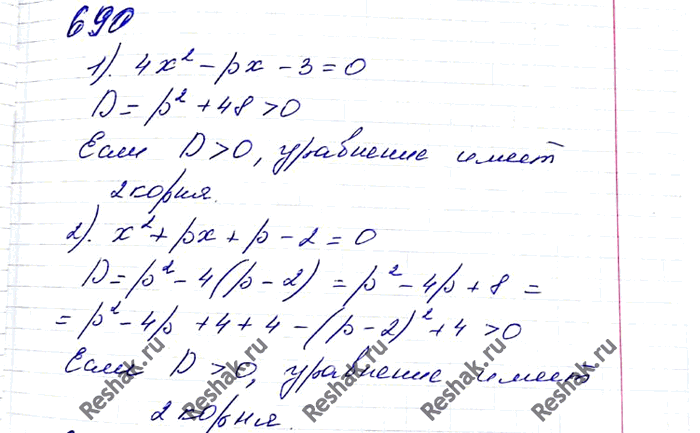 690
1). 4x² - px - 3 = 0
D = p² + 48 > 0
Если D > 0, уравнение имеет
2 корня.
2). x² + px + p - 2 = 0
D = p² - 4(p - 2) = p² - 4p + 8 =
= p² - 4p + 4 + 4 - (p - 2)² + 4 > 0
Если D > 0, уравнение имеет
2 корня.
Reshak.ru Reshak.ru Reshak.ru Reshak.ru